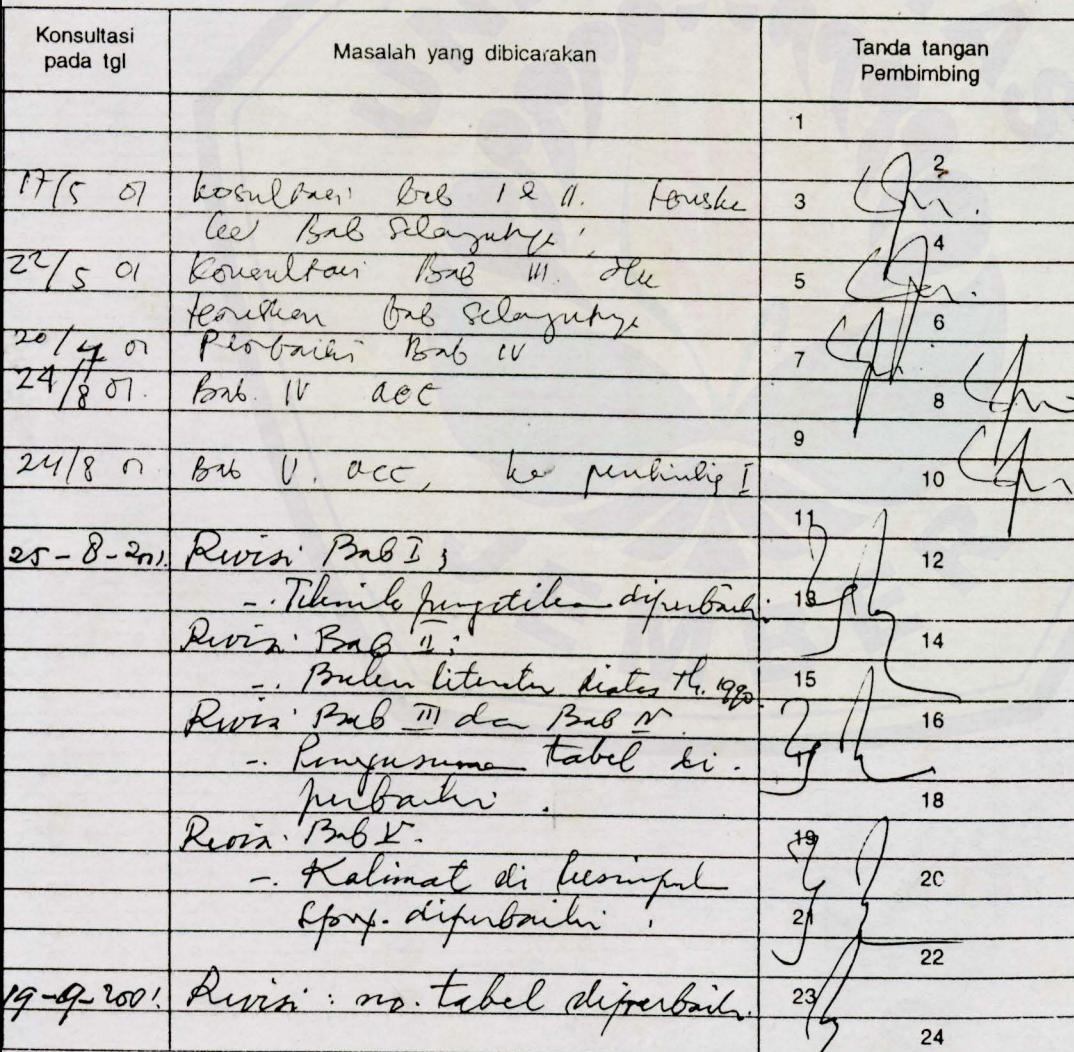 Konsultasi pada tgl Masalah yang dibicarakan Tanda tangan Pembimbing
1
2
17/5 01 Kosultasi bab I & II. 3
Bab Selanjutnya 4
22/5 01 Konsultasi Bab III. 5
teruskan bab Selanjutnya 6
20/7 01 Perbaiki Bab IV 7
24/8 01. Bab. IV acc 8
9
24/8 01 Bab V. acc, ke pembimbing I 10
11
25-8-2001. Revisi Bab I; 12
-. Teknik pengetikan diperbaiki. 13
Revisi Bab II: 14
-. literatur diatas th. 1990 15
Revisi Bab III dan Bab IV 16
-. Penyusunan tabel di- 17
perbaiki. 18
Revisi Bab V. 19
-. Kalimat di kesimpulan 20
diperbaiki. 21
22
19-9-2001. Revisi: no. tabel diperbaiki. 23
24